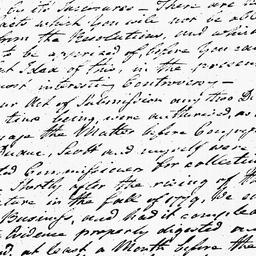 in its Measures — There are
which you will not be able
from the Resolutions, and which
to be apprized of, before you can
Idea of this, in the present
most interesting Controversy —
our Act of Submission any two De
time being, were authorized, to
nage the Matter before Congress
Duane, Scott and myself were
ted Commissioners for collecting
Shortly after the rising of the
ature in the fall of 1779, We en
Business, and had it compleat
Evidence properly digested and
at least a Month before the